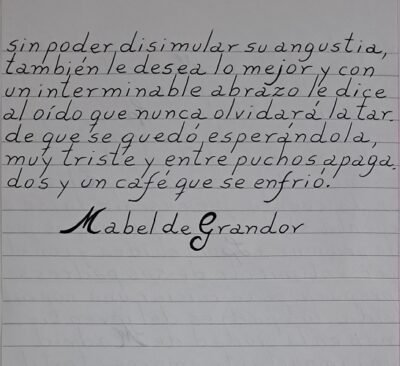 sin poder disimular su angustia,
también le desea lo mejor y con
un interminable abrazo le dice
al oído que nunca olvidará la tar.
de que se quedó esperándola,
muy triste y entre puchos apaga.
dos y un café que se enfrió.
Mabel de Grandor